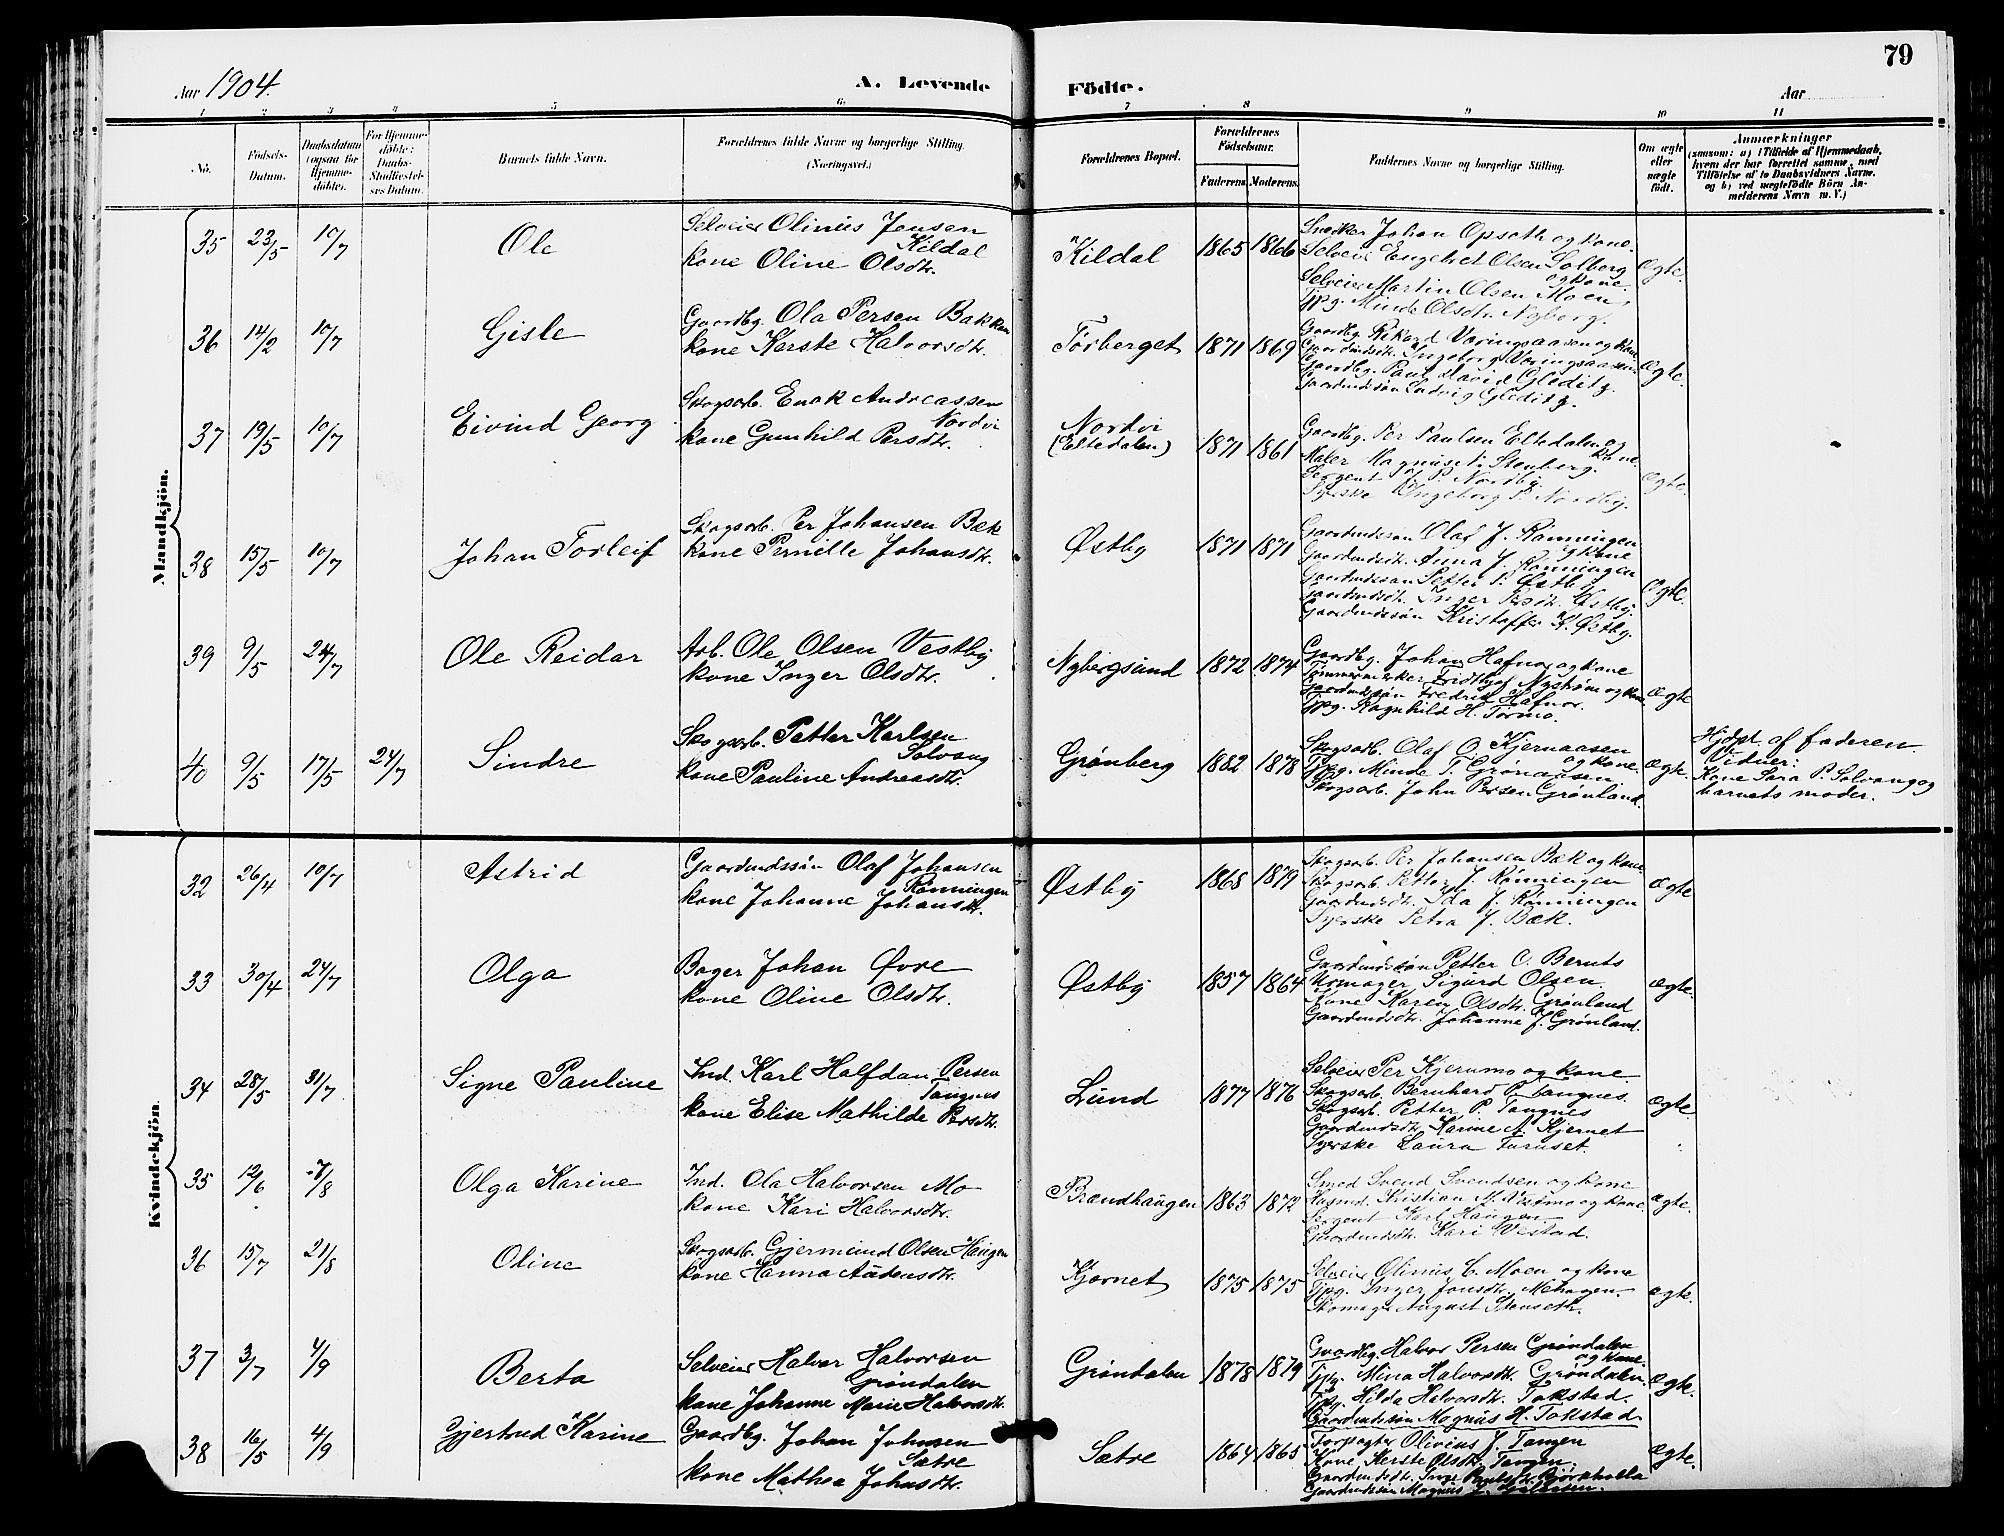 79
Aar 1904.
A. Levende Födte.
Aar
1 2 3 4 5 6. 7 8 9 10 11
No.
Födsels-Datum.
Daabsdatum (ogsaa for Hjemme-döbte).
For Hjemme-döbte: Daabs-Stadfæstel-ses Datum.
Barnets fulde Navn.
Forældrenes fulde Navne og borgerlige Stilling. (Næringsvei.)
Forældrenes Bopæl.
Forældrenes Födselsaar.
Faderens. Moderens.
Faddernes Navne og borgerlige Stilling.
Om ægte eller uægte födt.
Anmærkninger
(saasom: a) i Tilfælde af Hjemmedaab, hvem der har forrettet samme, med Tilföielse af to Daabsvidners Navne. og b) ved uægtefödte Börn An-melderens Navn m. V.)
Mandkjön.
35 23/5 10/7 Ole
Selveier Olinus Jensen Kildal
kone Oline Olsdtr.
Kildal 1865 1866
Snedker Johan Opsath og kone.
Selveier Engebret Olsen Solberg og kone.
Selveier Martin Olsen Moen,
Tjpg. Minde Olsdtr. Nyborg.
ægte.
36 14/2 10/7 Gisle
Gaardbg. Ola Persen Bakken
kone Kerste Halvorsdtr.
Törberget 1871 1869
Gaardbg. Rikard Væringsaasen og kone
Gaardmdsdtr. Ingeborg Væringsaasen.
Gaardbg. Paul David Gleditz.
Gaardmdssön Ludvig Gleditz.
ægte.
37 19/5 10/7 Eivind Georg
Skogsarb. Enok Andreassen Nordvi
kone Gunhild Persdtr.
Nordvi (Eltedalen) 1871 1861
Gaardbg. Per Paulsen Eltedalen og kone.
Maler Magnus Stenberg.
Sergent P. Nordby.
Syerske Ingeborg P. Nordby.
ægte.
38 15/5 10/7 Johan Torleif
Skogsarb. Per Johansen Bæk
kone Pernille Johansdtr.
Østby 1871 1871
Gaardmdssön Olaf J. Rönningen og kone
Gaardmdsdtr. Anna J. Rönningen
Gaardmdssön Petter P. Østby
Gaardmdsdtr. Inger Persdtr. Østby.
Gaardmdssön Kristoffer K. Østby.
ægte.
39 9/5 24/7 Ole Reidar
Arb. Ole Olsen Vestby
kone Inger Olsdtr.
Nybergsund 1872 1874
Gaardbg. Johan Hafnor og kone
Tömmermerker Fridthjof Nyström og kone.
Gaardmdssön Fredrik Hafnor.
Tjpg. Ragnhild H. Tørmo.
ægte
40 9/5 17/5 24/7 Sindre
Skogsarb. Petter Karlsen Solvang
kone Pauline Andreasdtr.
Grønberg 1882 1878
Skogsarb. Olaf O. Kjernaasen og kone.
Tjpg. Minde T. Grønaasen
Skogsarb. John Persen Grønland.
ægte.
Hjdpt. af faderen
Vidner:
Kone Sara P. Solvang og
barnets moder.
Kvindekjön
32 26/4 10/7 Astrid
Gaardmdssön Olaf Johansen Rønningen
kone Johanne Johansdtr.
Østby 1868 1879
Skogsarb. Per Johansen Bæk og kone.
Skogsarb. Petter J. Rønningen
Gaardmdsdtr. Ida J. Rønningen
Syerske Petra J. Bæk.
ægte
33 30/4 24/7 Olga
Bager Johan Øvre
kone Oline Olsdtr.
Østby 1857 1864
Gaardmdssön Petter O. Bernts
Skomager Sigurd Olsen.
Kone Karen Olsdtr. Grønland
Gaardmdsdtr. Johanne J. Grønland.
ægte.
34 28/5 31/7 Signe Pauline
Ind. Karl Halfdan Persen Tangnes
kone Elise Mathilde Persdtr.
Lund 1877 1876
Selveier Per Kjermmo og kone.
Skogsarb. Bernhard P. Tangnes.
Skogsarb. Petter P. Tangnes
Gaardmdsdtr. Karine A. Kjernet
Syerske Laura Furuset.
ægte
35 12/6 7/8 Olga Karine
Ind. Ola Halvorsen Mo
kone Kari Halvorsdtr.
Brændhaugen 1863 1872
Smed Svend Svendsen og kone
Husmd. Kristian M. Vestmo og kone.
Sergent Karl Haugen
Gaardmdsdtr. Kari Vestad.
ægte.
36 15/7 21/8 Oline
Skogsarb. Gjermund Olsen Haugen
kone Hanna Audensdtr.
Kjernet 1875 1875
Selveier Olinus C. Moen og kone
Tjpg. Inger Jonsdtr. Mehagen.
Skomager August Stenseth.
ægte.
37 3/7 4/9 Berta
Selveier Halvor Halvorsen Grøndalen
kone Johanne Marie Halvorsdtr.
Grøndalen 1878 1879
Gaardbg. Halvor Persen Grøndalen og kone.
Tjpg. Mina Halvorsdtr. Grøndalen.
Tjpg. Hilda Halvorsdtr. Tokstad.
Gaardmdssön Magnus H. Tokstad
ægte.
38 16/5 4/9 Gjertrud Karine
Gaardbg. Johan Johnsen Sætre
kone Mathea Johnsdtr.
Sætre 1864 1865
Forpagter Olivius J. Tangen
Kone Kerste Olsdtr. Tangen.
Gaardmdsdtr. Inger Paulsdtr. Bjørnholla
Gaardmdssön Magnus
ægte.